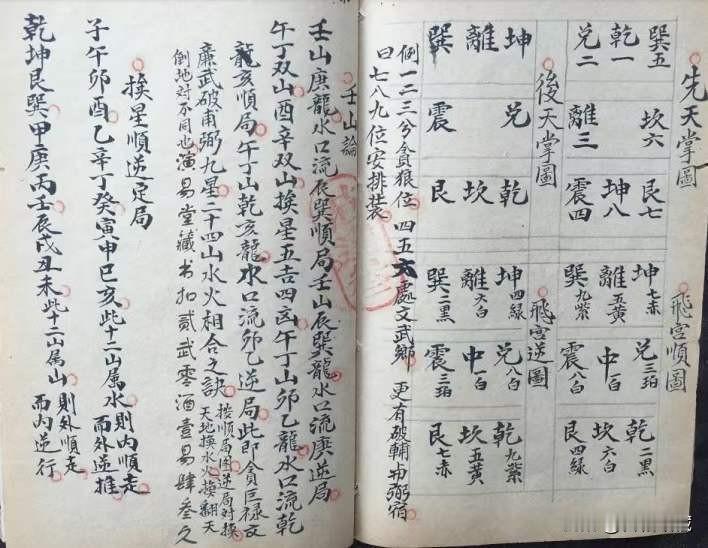 先天掌圖
巽五 坎六 艮七
乾一 坤八
兌二 離三 震四
後天掌圖
坤 兌 乾
離 坎
巽 震 艮
飛宮順圖
坤七赤 兌三珀 乾二黑
離五黃 中一白 坎六白
巽九紫 震八白 艮四緑
飛宮逆圖
坤四緑 兌八白 乾九紫
離六白 中一白 坎五黃
巽二黑 震三珀 艮七赤
例一二三兮貪狼位 四五六處文武鄉 更有破輔弼宿
曰七八九位安排裝
壬山論
壬山庚龍水口流辰巽順局壬山辰巽龍水口流庚逆局
午丁双山酉辛双山挨星五吉四凶午丁山卯乙龍水口流乾
龍亥順局午丁山乾亥龍水口流卯乙逆局此即貪巨禄文
廉武破甫弼九星二十四山水火相合之訣
挨順局囬逆局对挨
天地換水火換翻天
倒地对不同也演易堂藏书扣貳武零酒壹易肆叁久
挨星順逆定局
子午卯酉乙辛丁癸寅申巳亥此十二山属水
則内順走
而外逆推
乾坤艮巽甲庚丙壬辰戌丑未此十二山属山
則外順走
而内逆行